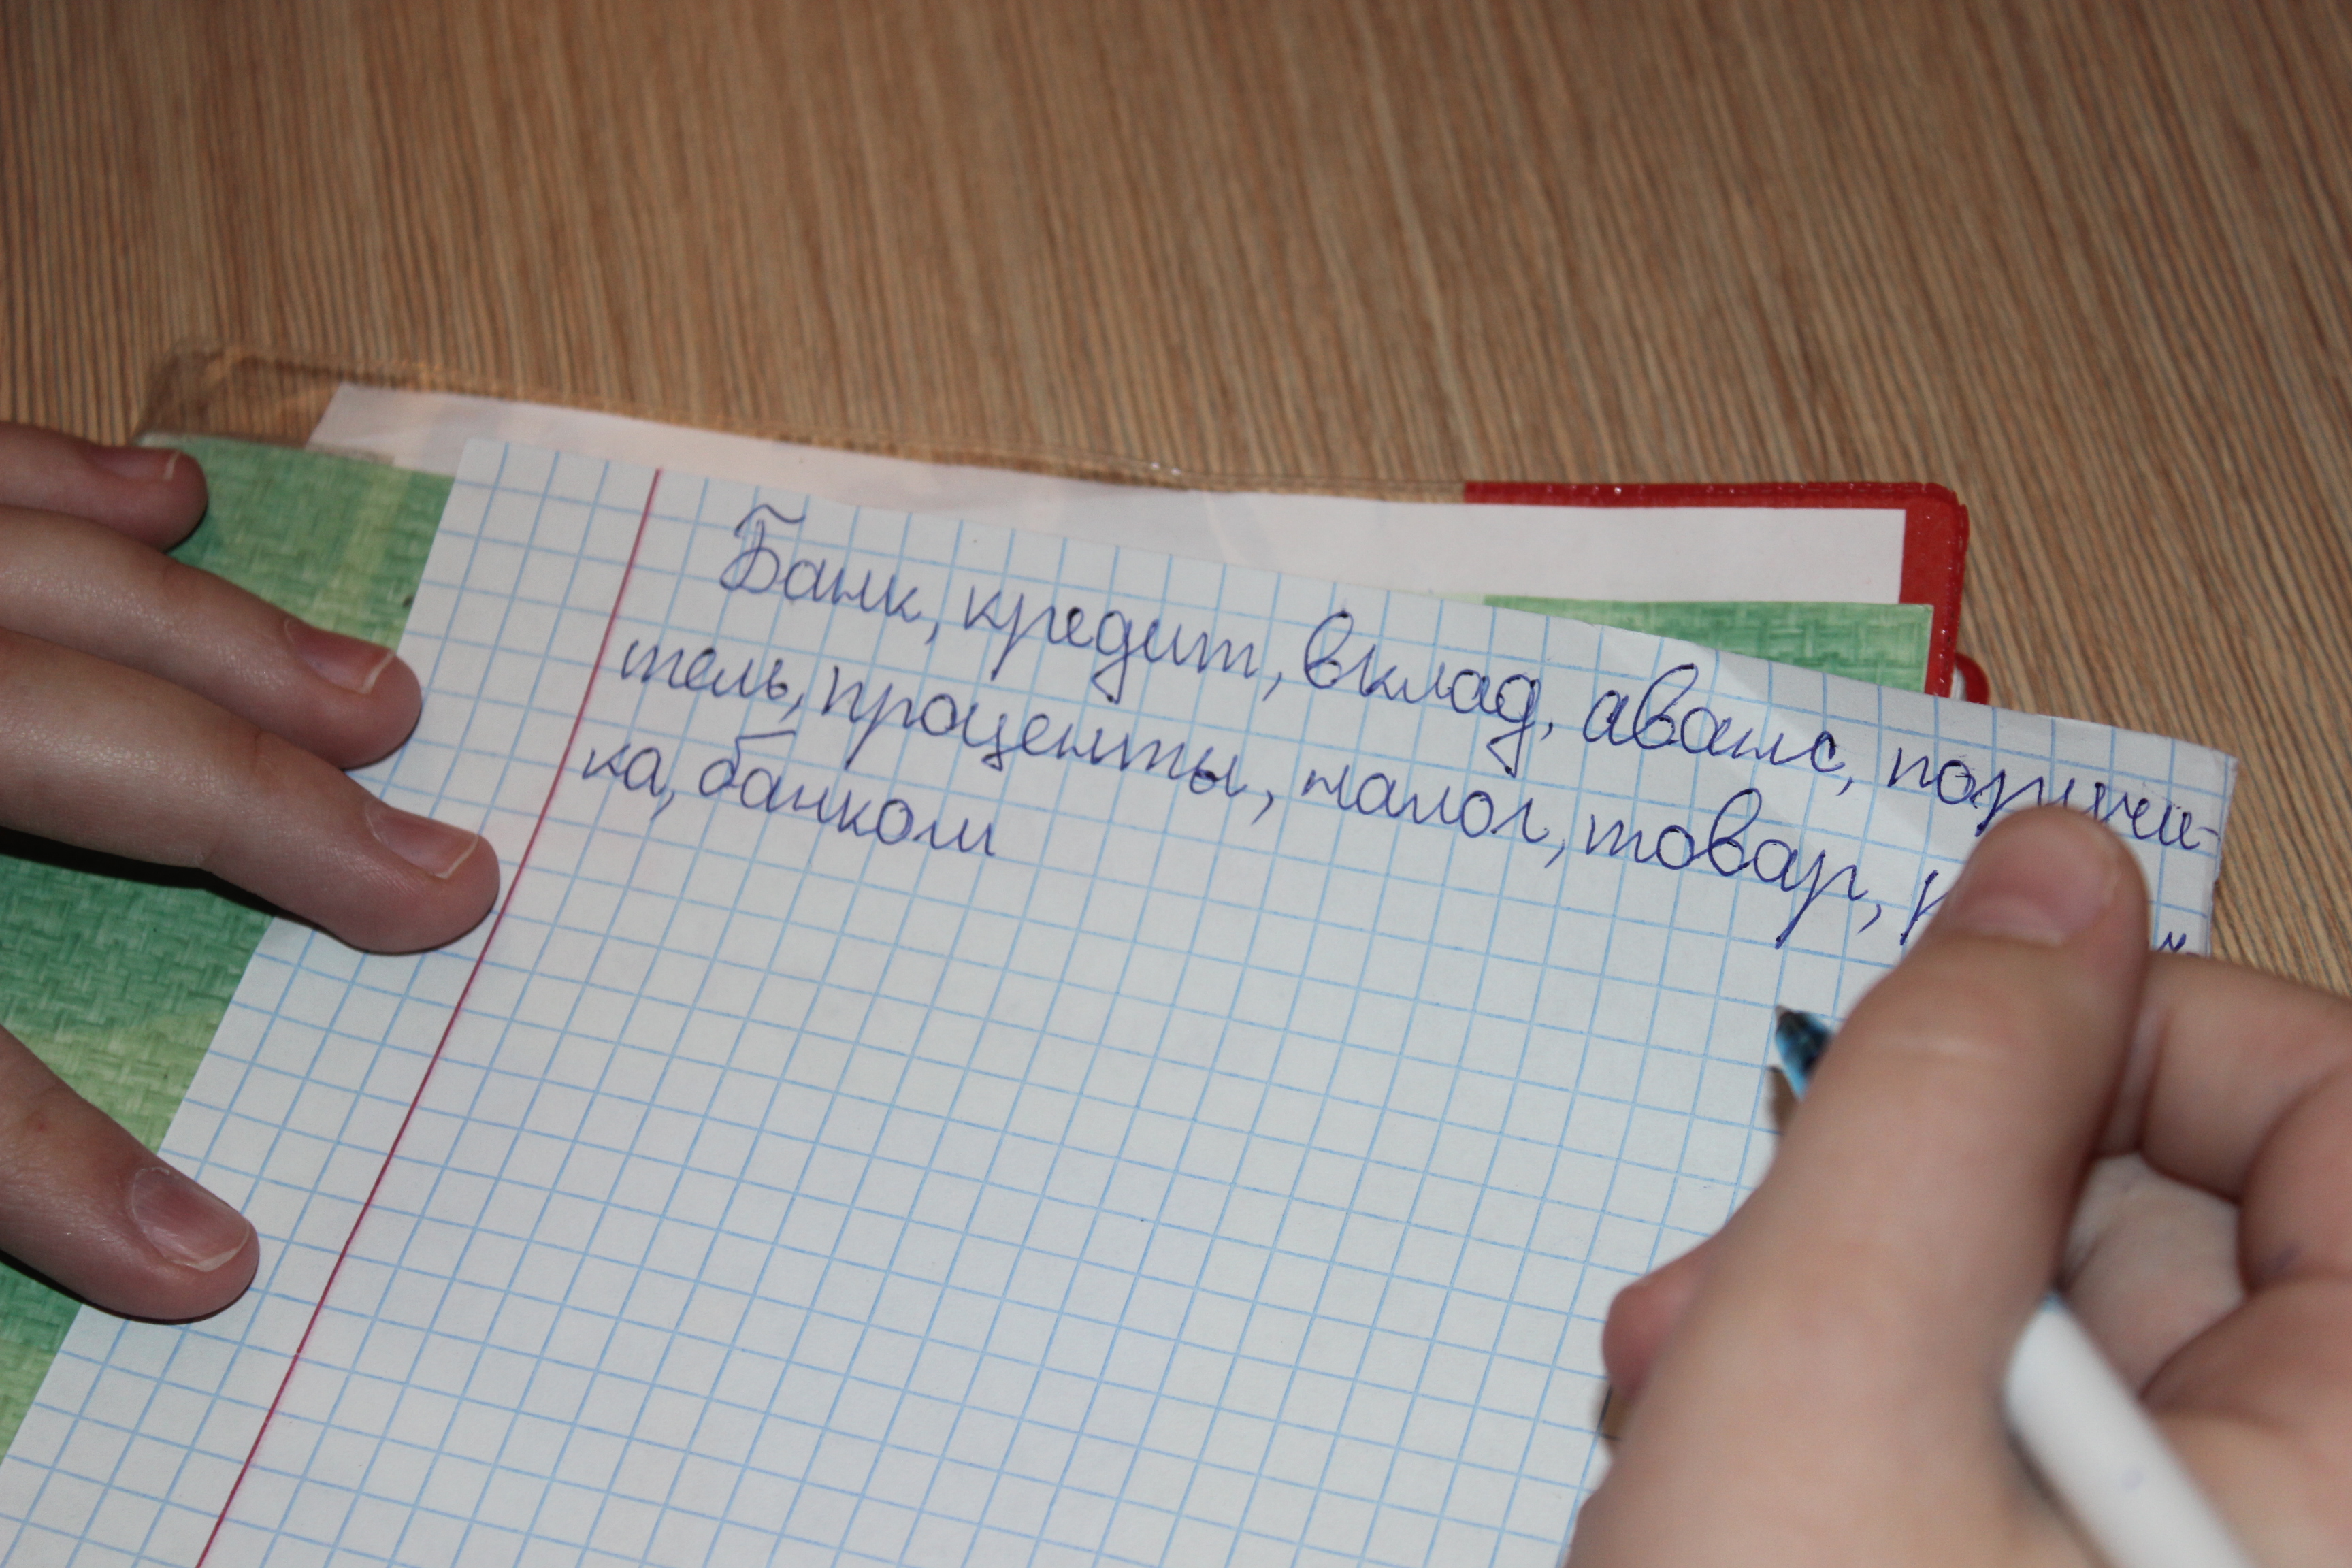 Банк, кредит, вклад, аванс, поручи-
тель, проценты, налог, товар,
ка, банком